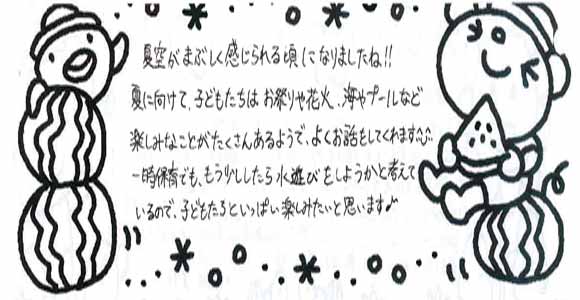 夏空がまぶしく感じられる頃になりましたね!!
夏に向けて、子どもたちはお祭りや花火、海やプールなど
楽しみなことがたくさんあるようで、よくお話をしてくれます
一時保育でも、もう少ししたら水遊びをしようかと考えて
いるので、子どもたちといっぱい楽しみたいと思います♪